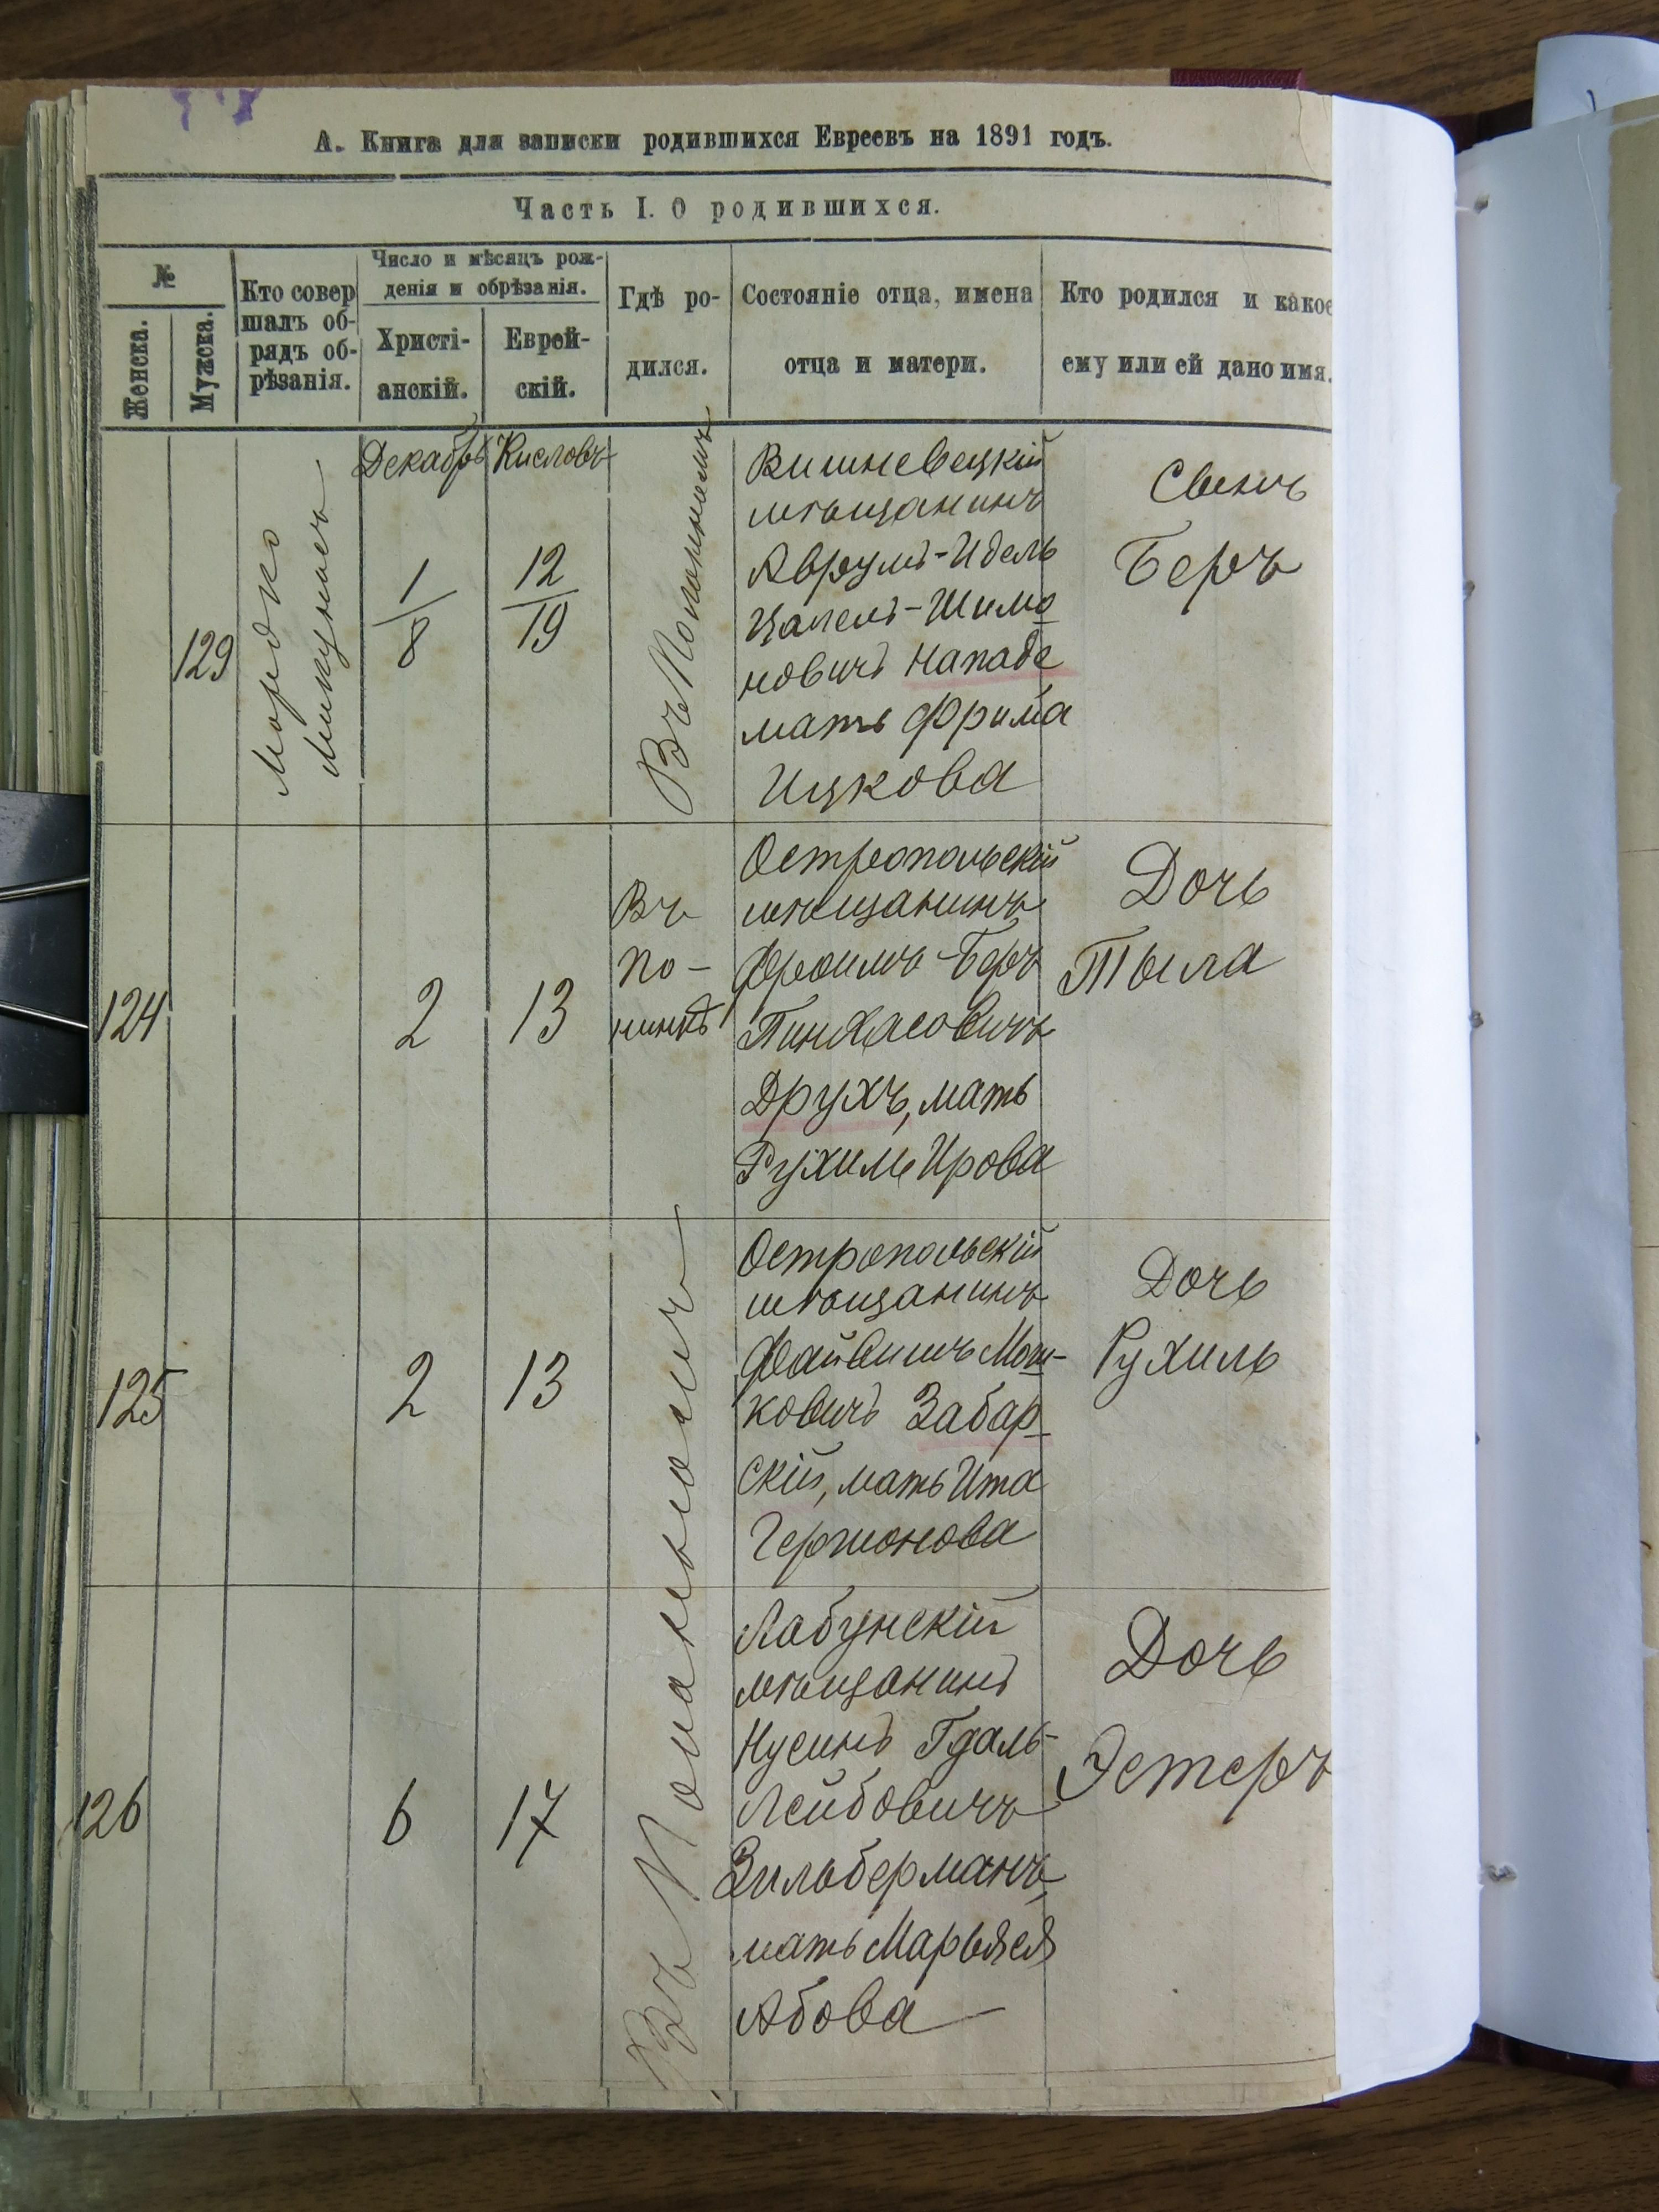 А. Книга для записки родившихся Евреевъ на 1891 годъ.
Часть I. О родившихся.
№
Женска.
Мужска.
Кто совер
шалъ об-
рядъ об-
рѣзанія.
Число и мѣсяцъ рож-
денія и обрѣзанія.
Христі-
анскій.
Еврей-
скій.
Гдѣ ро-
дился.
Состояніе отца, имена
отца и матери.
Кто родился и какое
ему или ей дано имя.
129
Мордко
Декабрь
1
8
Кисловъ
12
19
Въ Полонномъ
Вишневецкій
мѣщанинъ
Аврумъ-Идель
Цалель-Шимо
новичъ Нападе
мать Фрима
Ицкова
Сынъ
Беръ
124
2
13
Въ
По-
нинкѣ
Остропольскій
мѣщанинъ
Фроимъ-Беръ
Пинхасовичъ
Друхъ, мать
Рухиль Ирова
Дочь
Тыла
125
2
13
Остропольскій
мѣщанинъ
Файвишъ Мош-
ковичъ Забар-
скій, мать Ита
Гершонова
Дочь
Рухиль
126
6
17
Въ
Лабунскій
мѣщанинъ
Нусинъ Гдаль-
Лейбовичъ
Зильберманъ,
мать Марьяся
Абова
Дочь
Эстеръ